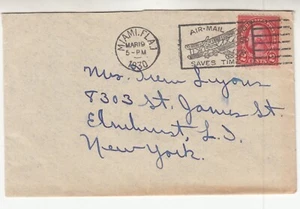 MIAMI, FLA.
MAR 19
5-PM
1930
AIR-MAIL
SAVES TIME
Mrs. Irew Lyons
8303 St. James St.
Elmhurst, L.I.
New-York.